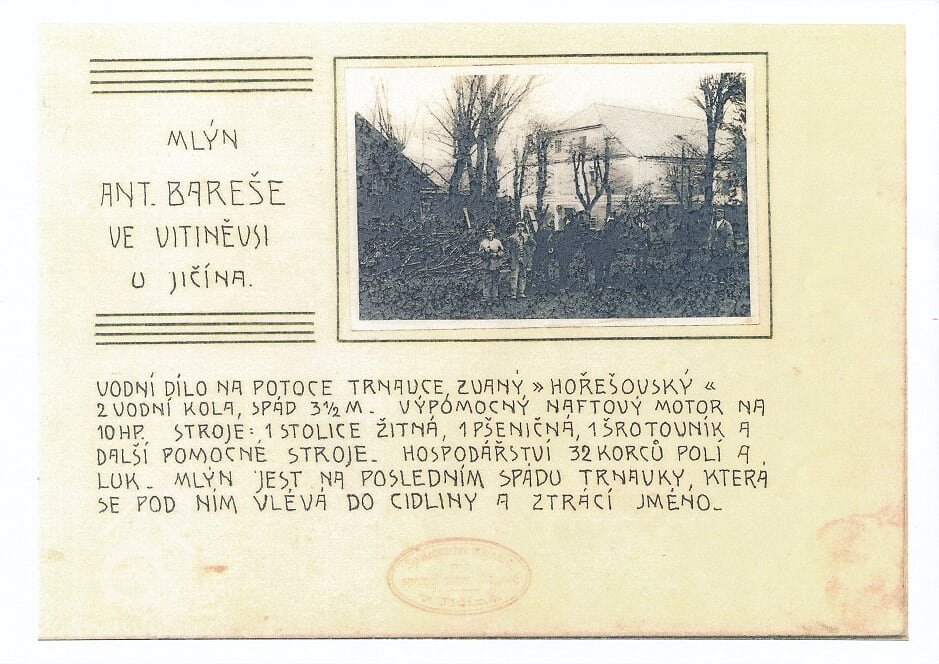 MLÝN
ANT. BAREŠE
VE VITINĚVSI
U JIČÍNA.
VODNÍ DÍLO NA POTOCE TRNAVCE, ZVANÝ » HOŘEŠOVSKÝ «
2 VODNÍ KOLA, SPÁD 3½ M. VÝPOMOCNÝ NAFTOVÝ MOTOR NA
10 HP. STROJE: 1 STOLICE ŽITNÁ, 1 PŠENIČNÁ, 1 ŠROTOVNÍK A
DALŠÍ POMOCNÉ STROJE. HOSPODÁŘSTVÍ 32 KORCŮ POLÍ A
LUK. MLÝN JEST NA POSLEDNÍM SPÁDU TRNAVKY, KTERÁ
SE POD NÍM VLÉVÁ DO CIDLINY A ZTRÁCÍ JMÉNO.
v Jičíně